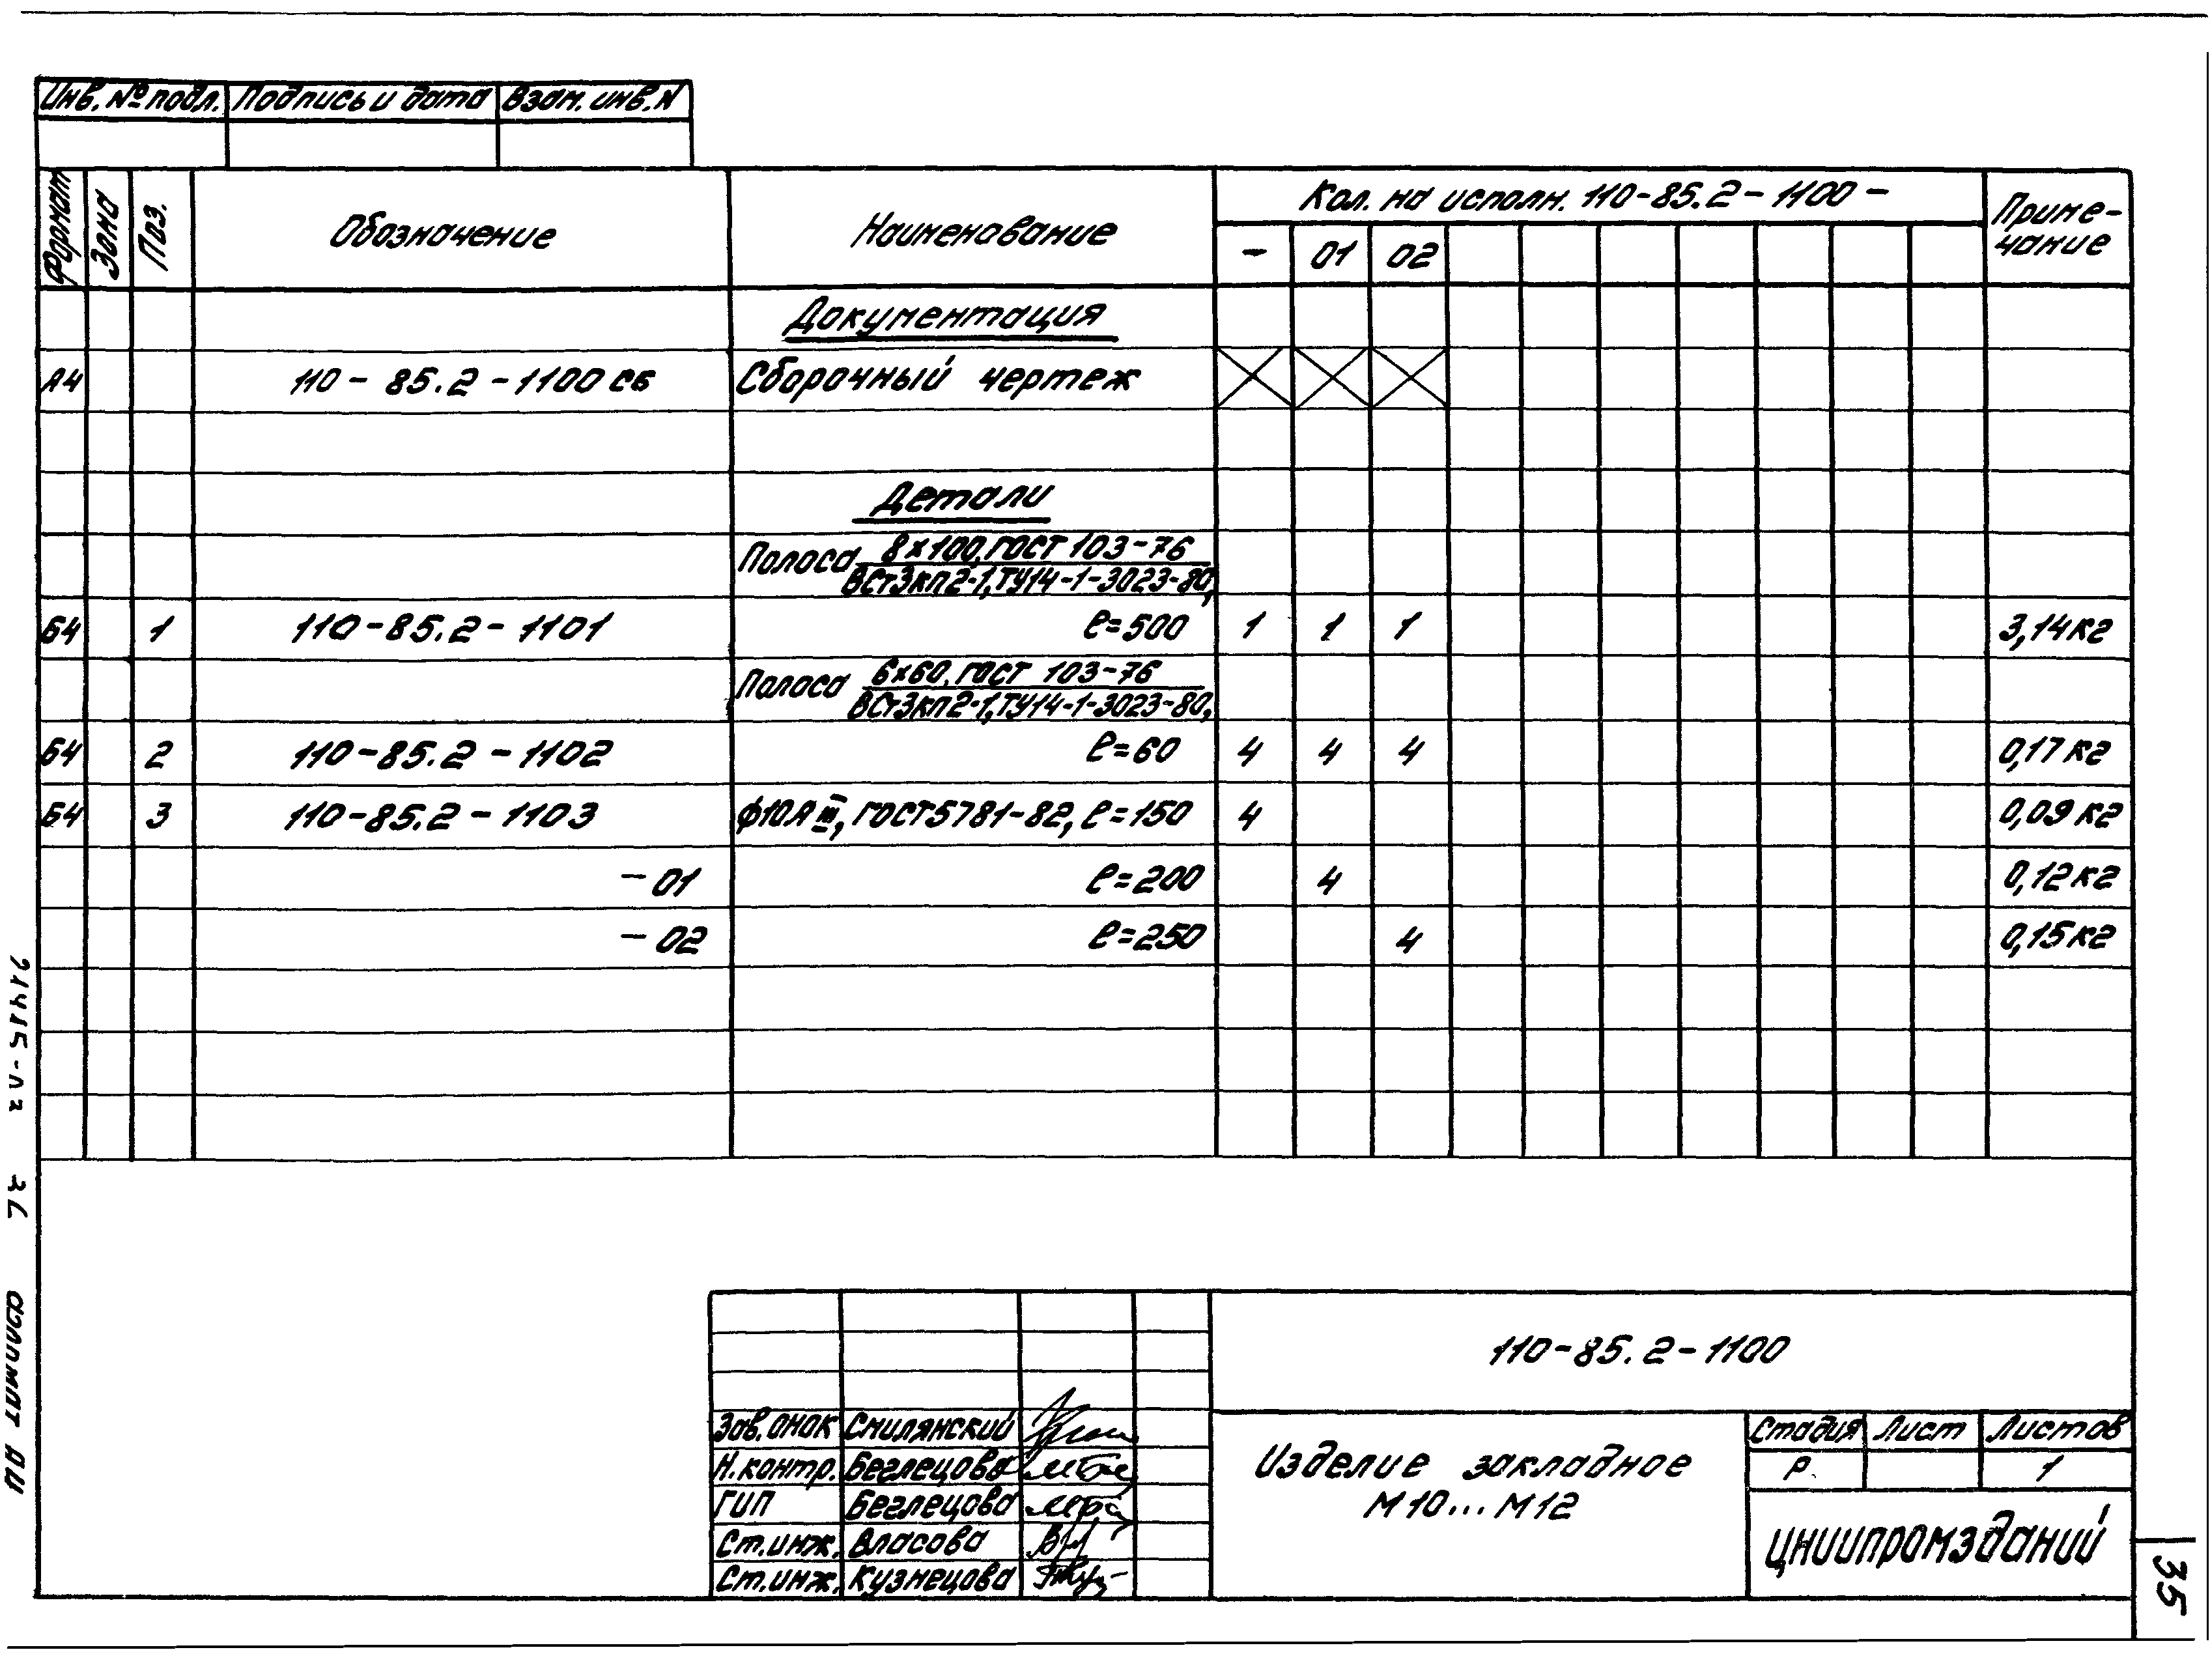 Инв. № подл. Подпись и дата Взам. инв. N
Формат Зона Поз. Обозначение Наименование Кол. на исполн. 110-85.2-1100- Приме-
чание
- 01 02
Документация
А4 110-85.2-1100 СБ Сборочный чертеж
Детали
Полоса 8х100, ГОСТ 103-76
ВСт3кп2-1, ТУ14-1-3023-80,
Б4 1 110-85.2-1101 ℓ=500 1 1 1 3,14 кг
Полоса 6х60, ГОСТ 103-76
ВСт3кп2-1, ТУ14-1-3023-80,
Б4 2 110-85.2-1102 ℓ=60 4 4 4 0,17 кг
Б4 3 110-85.2-1103 ф10АIII, ГОСТ5781-82, ℓ=150 4 0,09 кг
-01 ℓ=200 4 0,12 кг
-02 ℓ=250 4 0,15 кг
110-85.2-1100
Зав. ОНОК Смилянский
Н. контр. Беглецова
ГИП Беглецова
Ст. инж. Власова
Ст. инж. Кузнецова
Изделие закладное
М10...М12
Стадия Лист Листов
Р 1
ЦНИИПРОМЗДАНИЙ
35